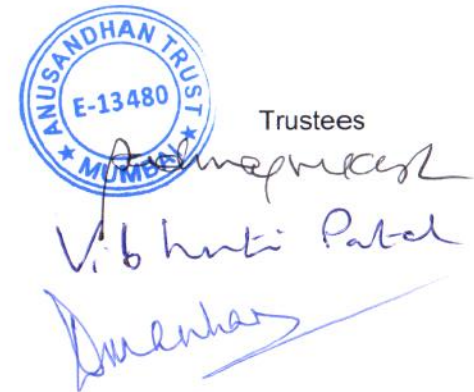 ANUSANDHAN TRUST
E-13480
★ MUMBAI ★
Trustees
Vibhuti Patel